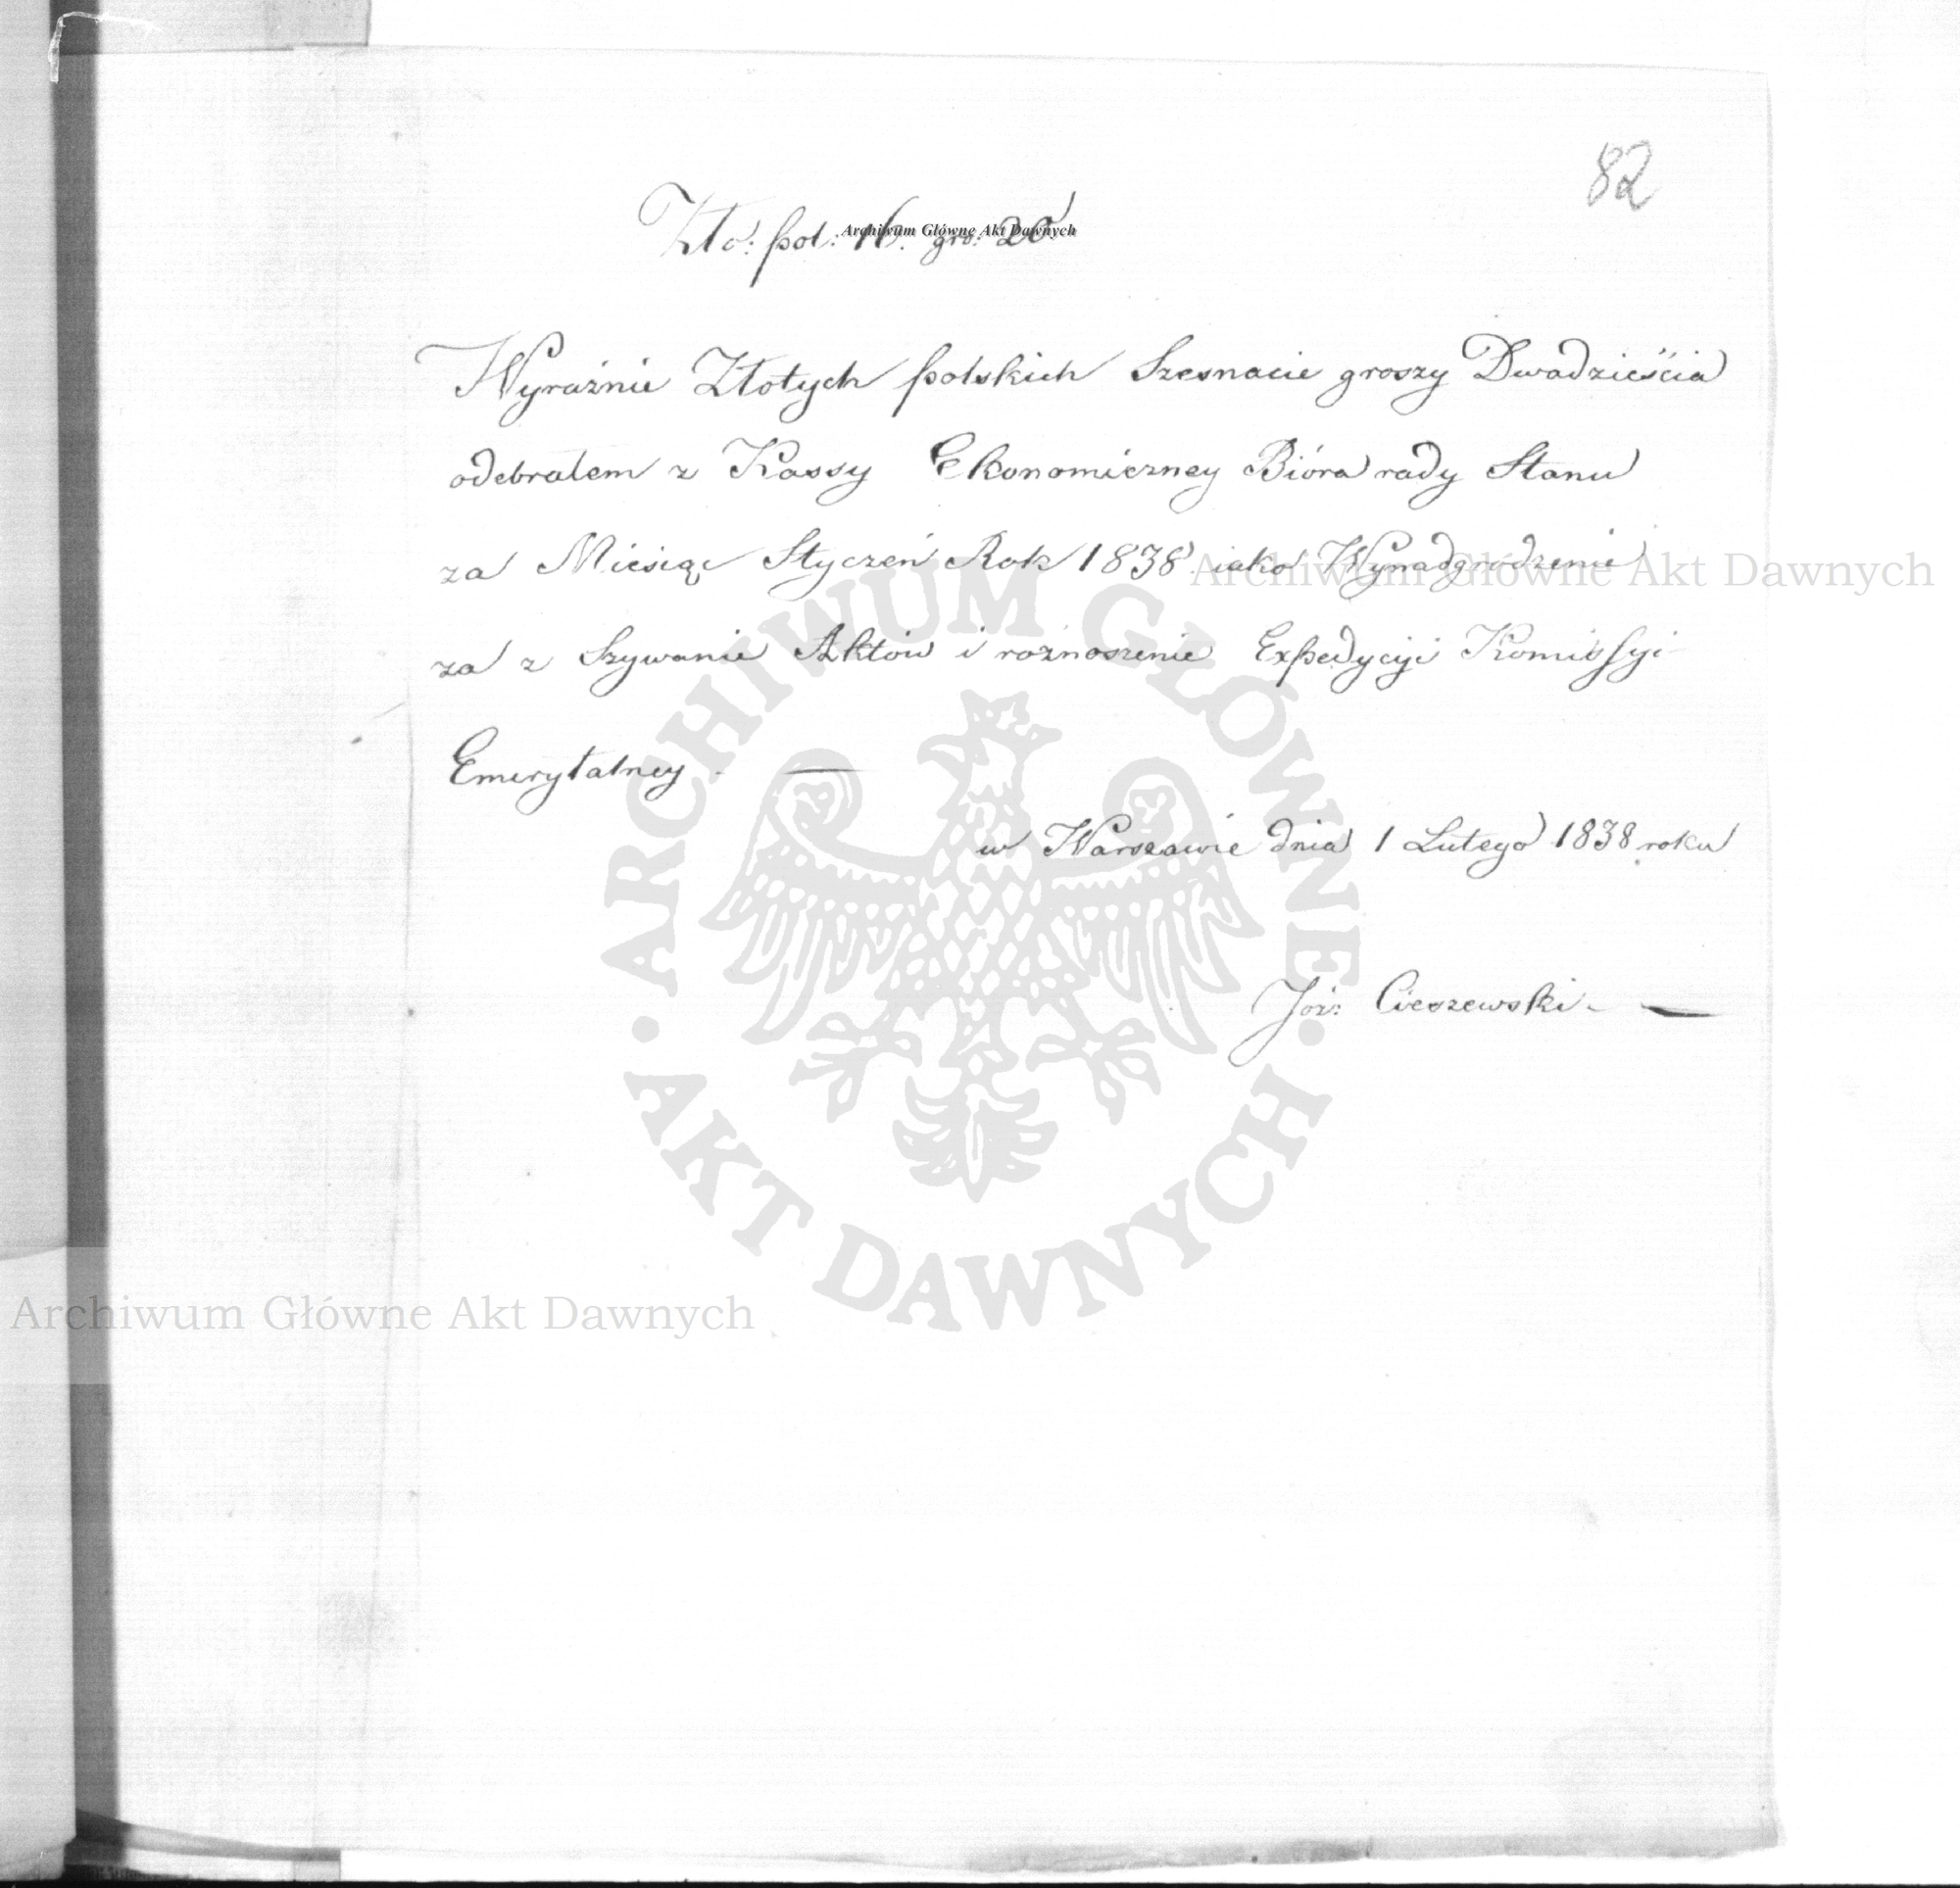 82
Zło: pol: 16. gro: 20
Archiwum Główne Akt Dawnych
Wyraźnie Złotych polskich Szesnacie groszy Dwadzieścia
odebralem z Kassy Ekonomiczney Bióra rady Stanu
za Miesiąc Styczeń Rok 1838 iako Wynadgrodzenie
Archiwum Główne Akt Dawnych
za z Szywanie Aktów i roznoszenie Expedycyi Komissyi
Emerytalney. —
w Warszawie dnia 1 Lutego 1838 roku
Joz: Cieszewski. —
ARCHIWUM GŁÓWNE
AKT DAWNYCH
Archiwum Główne Akt Dawnych